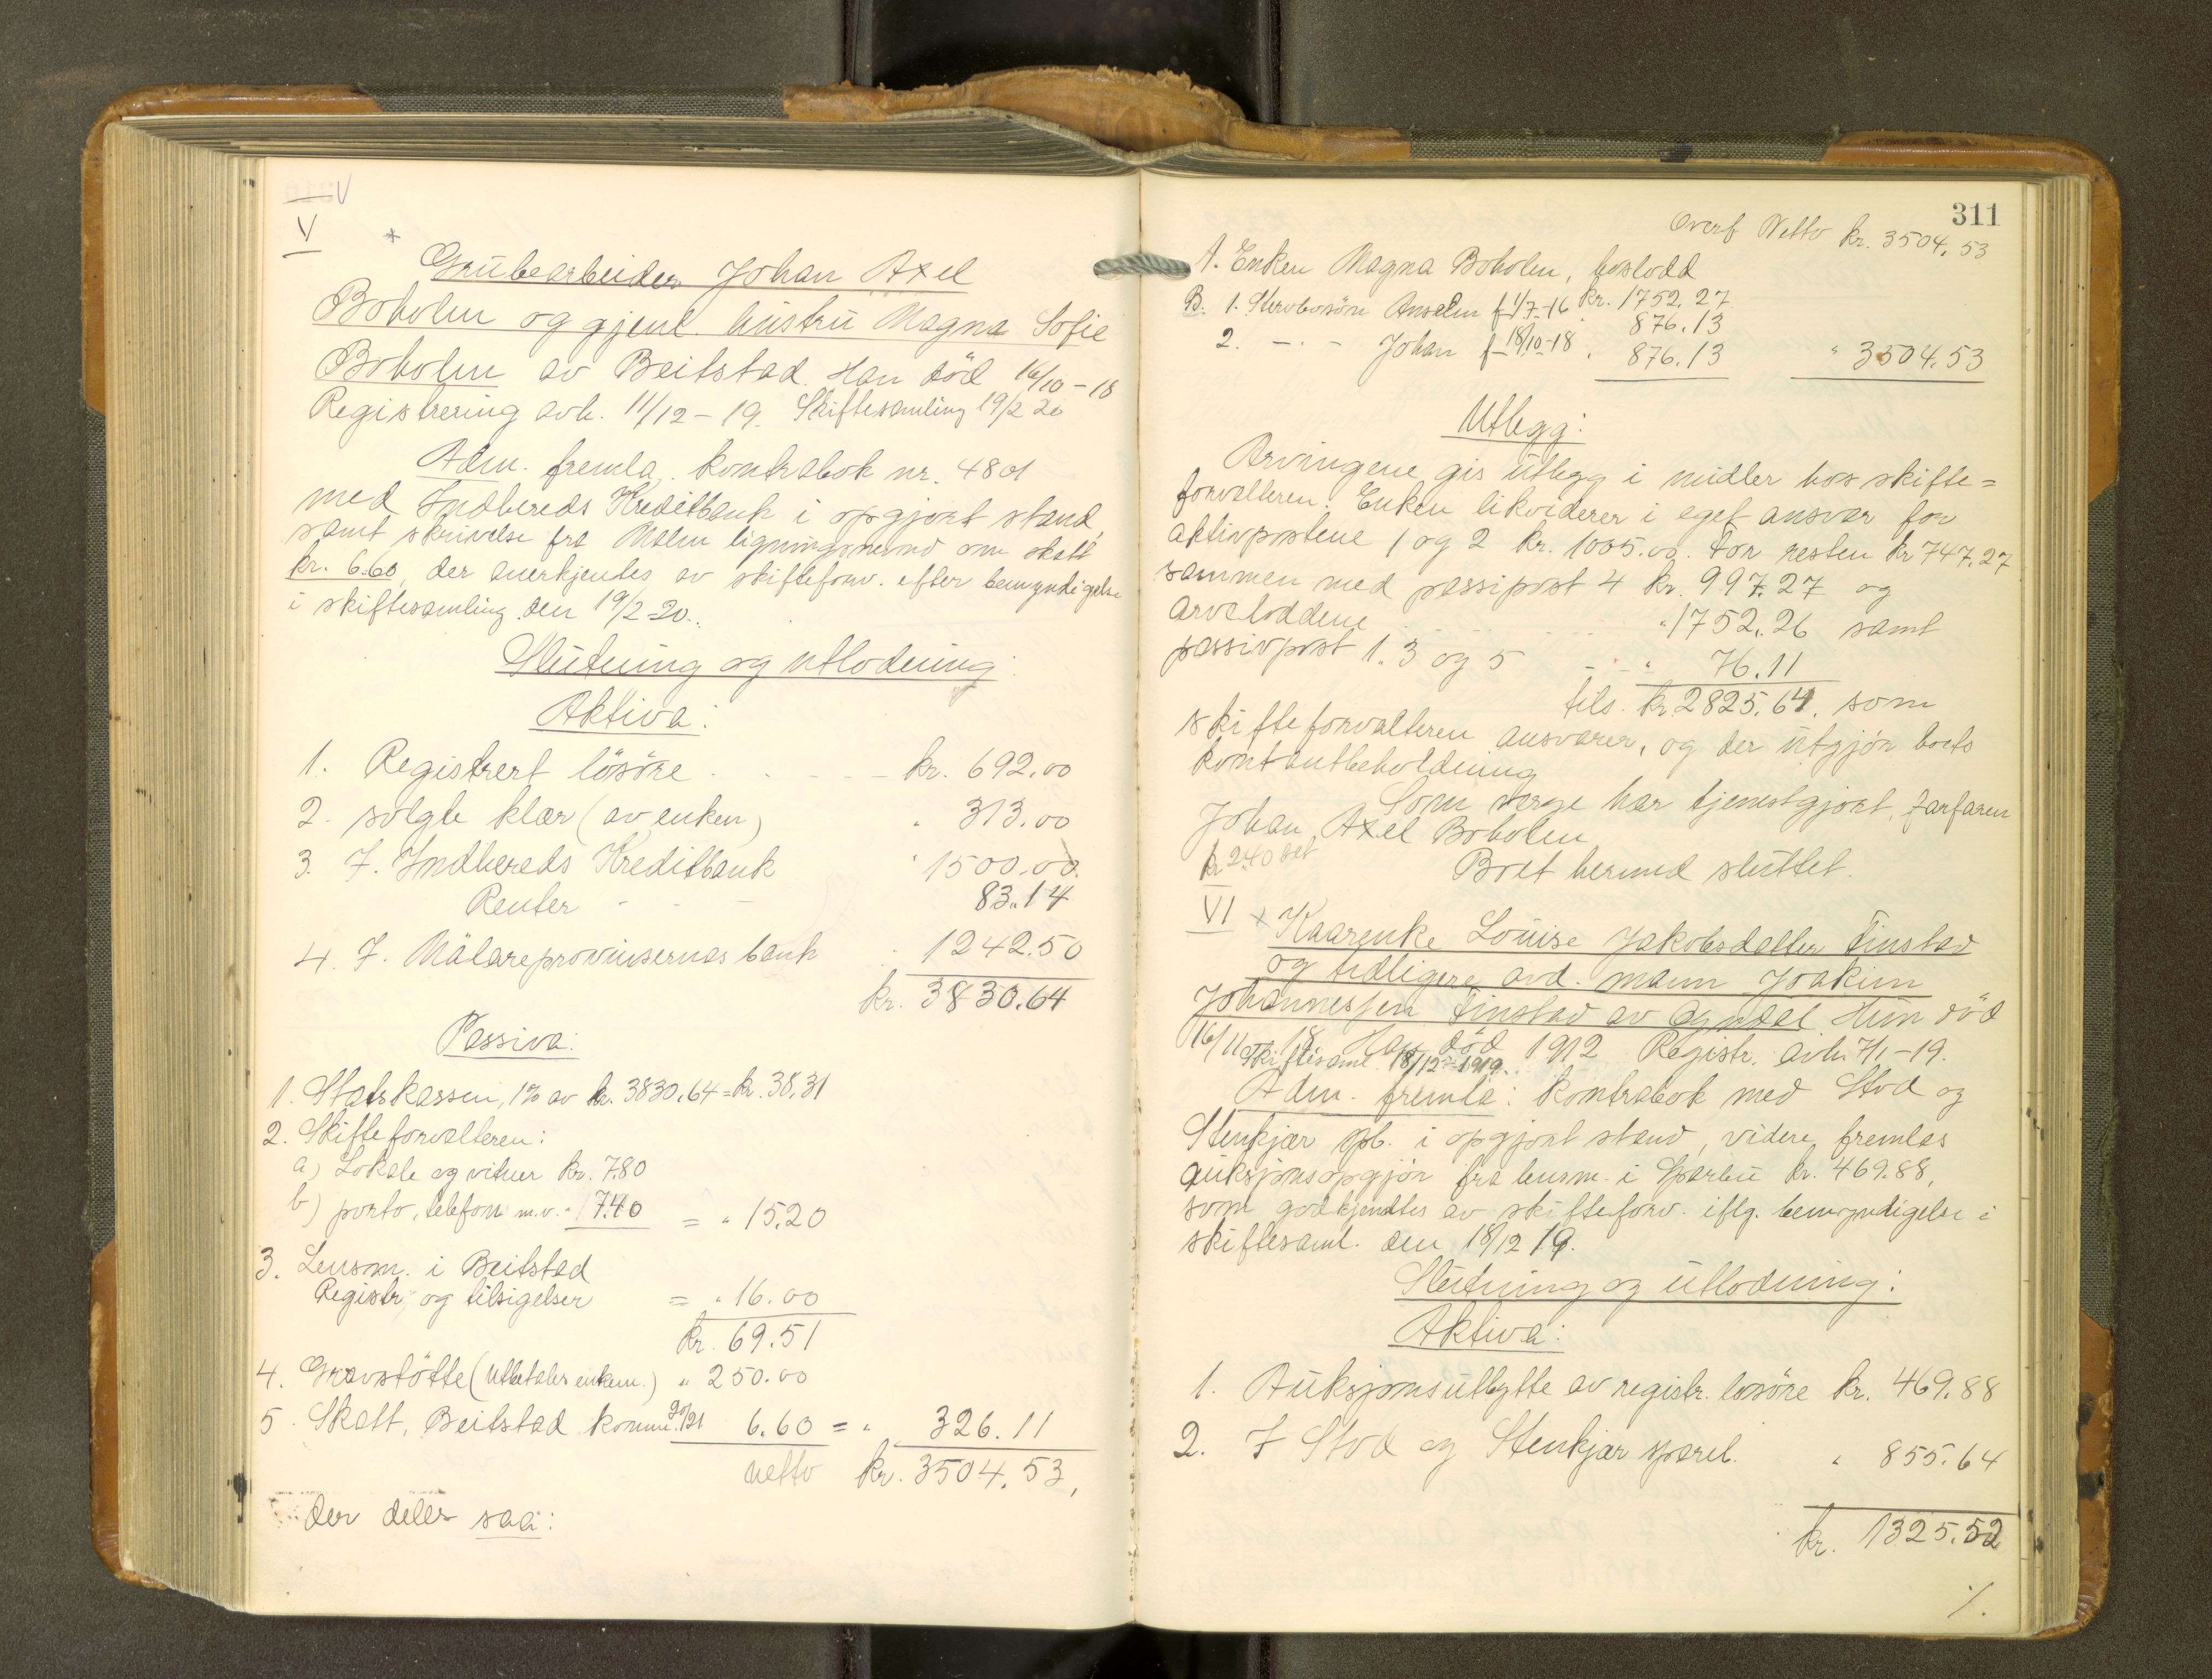 V
V
*
Grubearbeider Johan Axel
Boholm og gjenl. hustru Magna Sofie
Boholm av Beitstad. Han död 16/10-18
Registrering avh. 11/12-19. Skiftesamling 19/2 20
Adm. fremla. kontrabok nr. 4801
med Indhereds Kreditbank i opgjort stand,
samt skrivelse fra Malm ligningsnevnd om skatt
kr. 6.60, der anerkjentes av skifteforv. efter bemyndigelse
i skiftesamling den 19/2-20.
Slutning og utlodning:
Aktiva:
1. Registrert lösöre - - - kr. 692.00
2. solgte klær (av enken) " 313.00
3. I. Indhereds Kreditbank " 1500.00.
Renter - - - 83.14
4. I. Mälareprovinsernas bank " 1242.50
kr. 3830.64
Passiva:
1. Statskassen, 1% av kr. 3830.64 = kr. 38,31
2. Skifteforvalteren:
a) Lokale og vitner kr. 7.80
b) porto, telefon m.v. " 7.40 = " 15.20
3. Lensm. i Beitstad
Registr. og tilsigelser = " 16.00
kr. 69.51
4. Gravstötte (utbetales enken.) " 250.00
5. Skatt, Beitstad komm. 20/21 6.60 = " 326.11
netto kr. 3504.53,
der deles saa:
311
Overf Netto kr. 3504,53
A. Enken Magna Boholm, boslodd
kr. 1752.27
B. 1. Stervbosön Anselm f 1/7-16 " 876.13
2. -"- Johan f 18/10-18 " 876.13 " 3504.53
Utlegg:
Arvingene gis utlegg i midler hos skifte=
forvalteren. Enken likviderer i eget ansvar for
aktivpostene 1 og 2 kr. 1005.00. For resten kr 747.27
sammen med passipost 4 kr. 997.27 og
arveloddene " 1752.26 samt
passivpost 1. 3 og 5 - - " 76.11
tils. kr. 2825.64. som
skifteforvalteren ansvarer, og der utgjör boets
kontantbeholdning
Som verge har tjenestgjort farfaren
Johan Axel Boholm
kr 2.40 set
Boet hermed sluttet.
VI x Kaarenke Louise Jakobsdatter Finstad
og tidligere avd. mann Joakim
Johannessen Finstad av Ogndal. Hun död
16/11-18. Han död 1912 Registr. avh. 7/1-19.
Skiftesaml. 18/12-1919.
Adm. fremla: kontrabok med Stod og
Stenkjær spb. i opgjort stand, videre fremlas
auksjonsopgjör fra lensm. i Sparbu kr. 469.88,
som godkjendtes av skifteforv. iflg. bemyndigelse i
skiftesaml. den 18/12 19.
Slutning og utlodning:
Aktiva:
1. Auksjonsutbytte av registr. lösöre kr. 469.88
2. I Stod og Stenkjær spareb. " 855.64
kr. 1325.52
./.